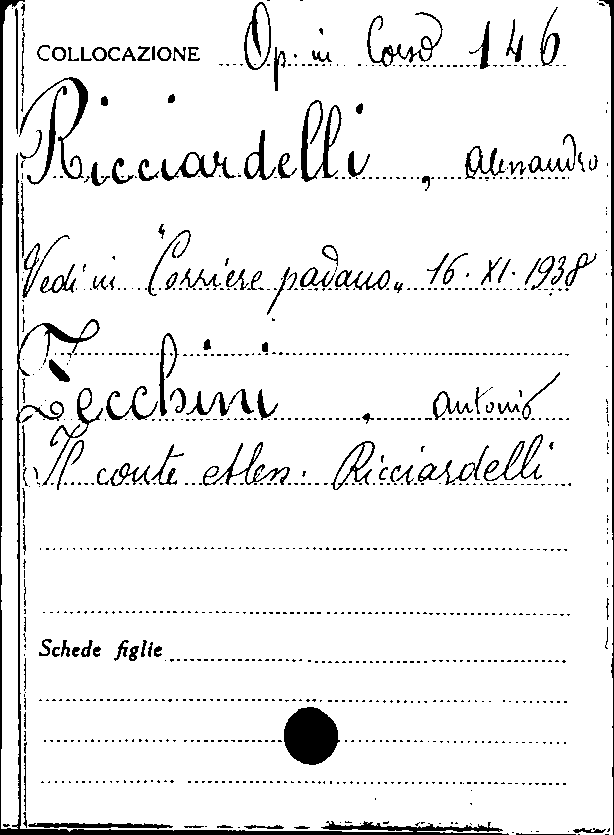 COLLOCAZIONE Op. in Corso 146
Ricciardelli, Alessandro
Vedi in "Corriere padano" 16.XI.1938
Zecchini, Antonio
Il conte Aless. Ricciardelli
Schede figlie